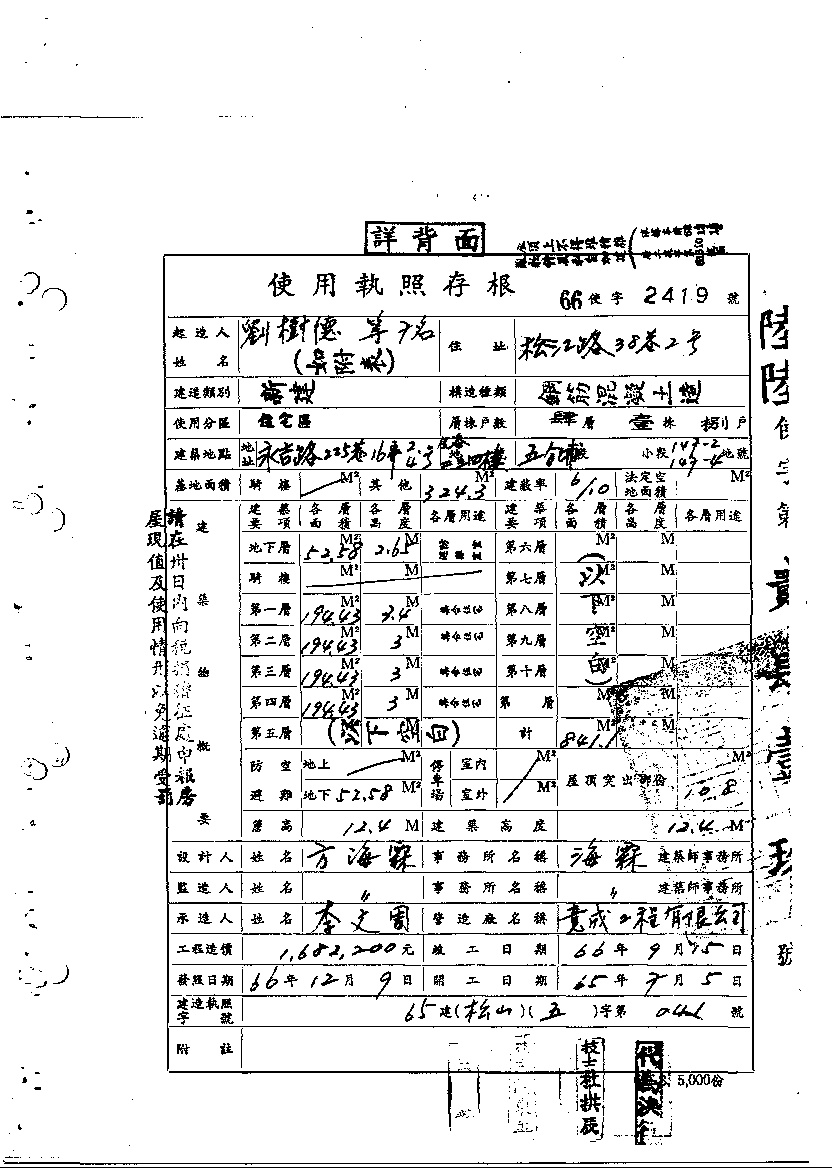 詳背面
使用執照存根
66使字2419號
起造人姓名 劉樹德等7名
住址 松江路38巷2号
建造類別 新建 構造種類 鋼筋混凝土造
使用分區 住宅區 層棟戶數 肆層 壹棟 捌戶
建築地點 地址 永吉路225巷16弄2.4号 五分埔段 小段 147-2 147-4 地號
基地面積 騎樓 M² 其他 324.3 M² 建蔽率 6/10 法定空地面積 M²
建築概要
建築要項 各層面積 各層高度 各層用途 建築要項 各層面積 各層高度 各層用途
地下層 52.58 M² 2.65 M 第六層 M² M
騎樓 M² M 第七層 M² M
第一層 194.43 M² 3.4 M 第八層 M² M
第二層 194.43 M² 3 M 第九層 M² M
第三層 194.43 M² 3 M 第十層 M² M
第四層 194.43 M² 3 M 第層 M² M
第五層 (以下空白) 計 841.1 M²
(以下空白)
防空避難 地上 M² 停車場 室內 M² 屋頂突出部份 10.8 M²
地下 52.58 M² 室外 M²
簷高 12.4 M 建築高度 12.4 M
設計人 姓名 方海霖 事務所名稱 海霖 建築師事務所
監造人 姓名 〃 事務所名稱 〃 建築師事務所
承造人 姓名 李文周 營造廠名稱 竟成工程有限公司
工程造價 1,682,200元 竣工日期 66年9月15日
發照日期 66年12月9日 開工日期 65年7月5日
建造執照字號 65建(松山)(五)字第041號
附註
請在卅日內向稅捐稽征處申報房
屋現值及使用情形以免逾期受罰
使字第
號
技士杜拱辰
代為決行
5,000份